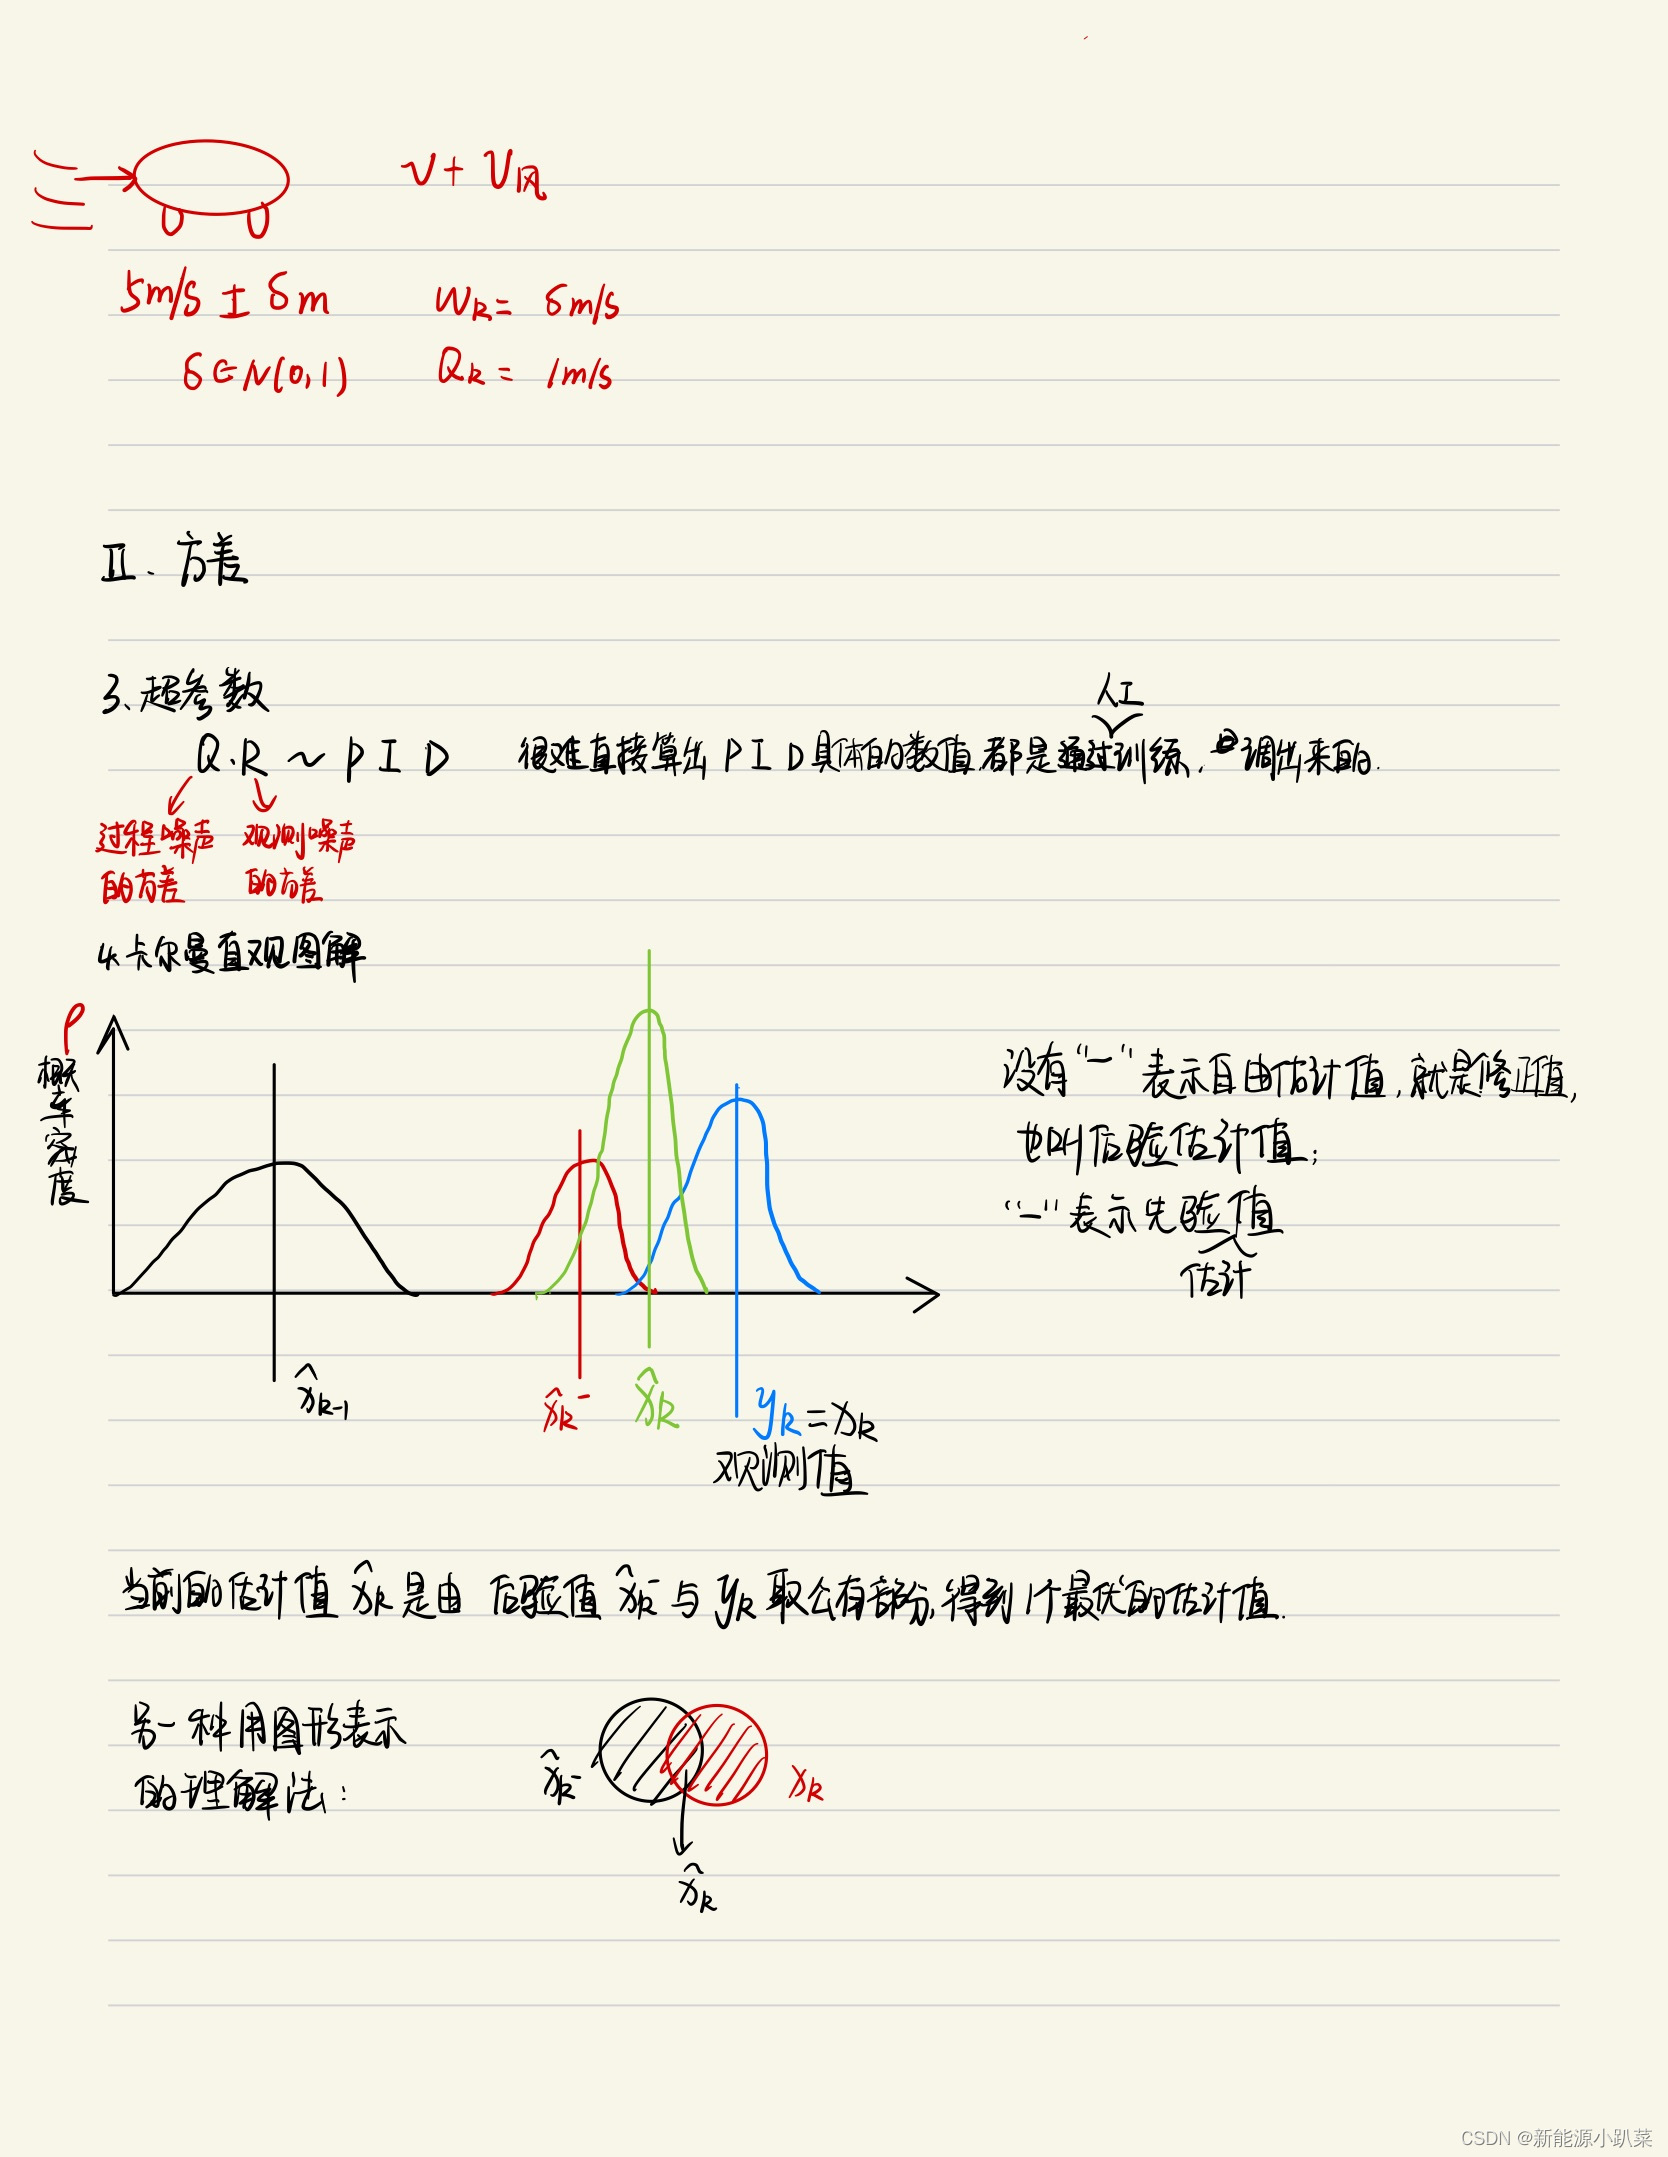 v + v风
5m/s ± δm    W_k = δm/s
δ∈N(0,1)    Q_k = 1m/s
Ⅱ. 方差
3、超参数
人工
Q.R ~ PID    很难直接算出PID具体的数值,都是通过训练,调出来的.
过程噪声    观测噪声
的方差    的方差
4.卡尔曼直观图解
ρ
概率密度
没有“—”表示自由估计值,就是修正值,
也叫后验估计值;
“—”表示先验值
估计
x̂_{k-1}    x̂_k^-    x̂_k    y_k = x_k
观测值
当前的估计值 x̂_k 是由 后验值 x̂_k^- 与 y_k 取公有部分,得到1个最优的估计值.
另一种用图形表示
的理解法:
x̂_k^-    x_k
x̂_k
CSDN @新能源小趴菜